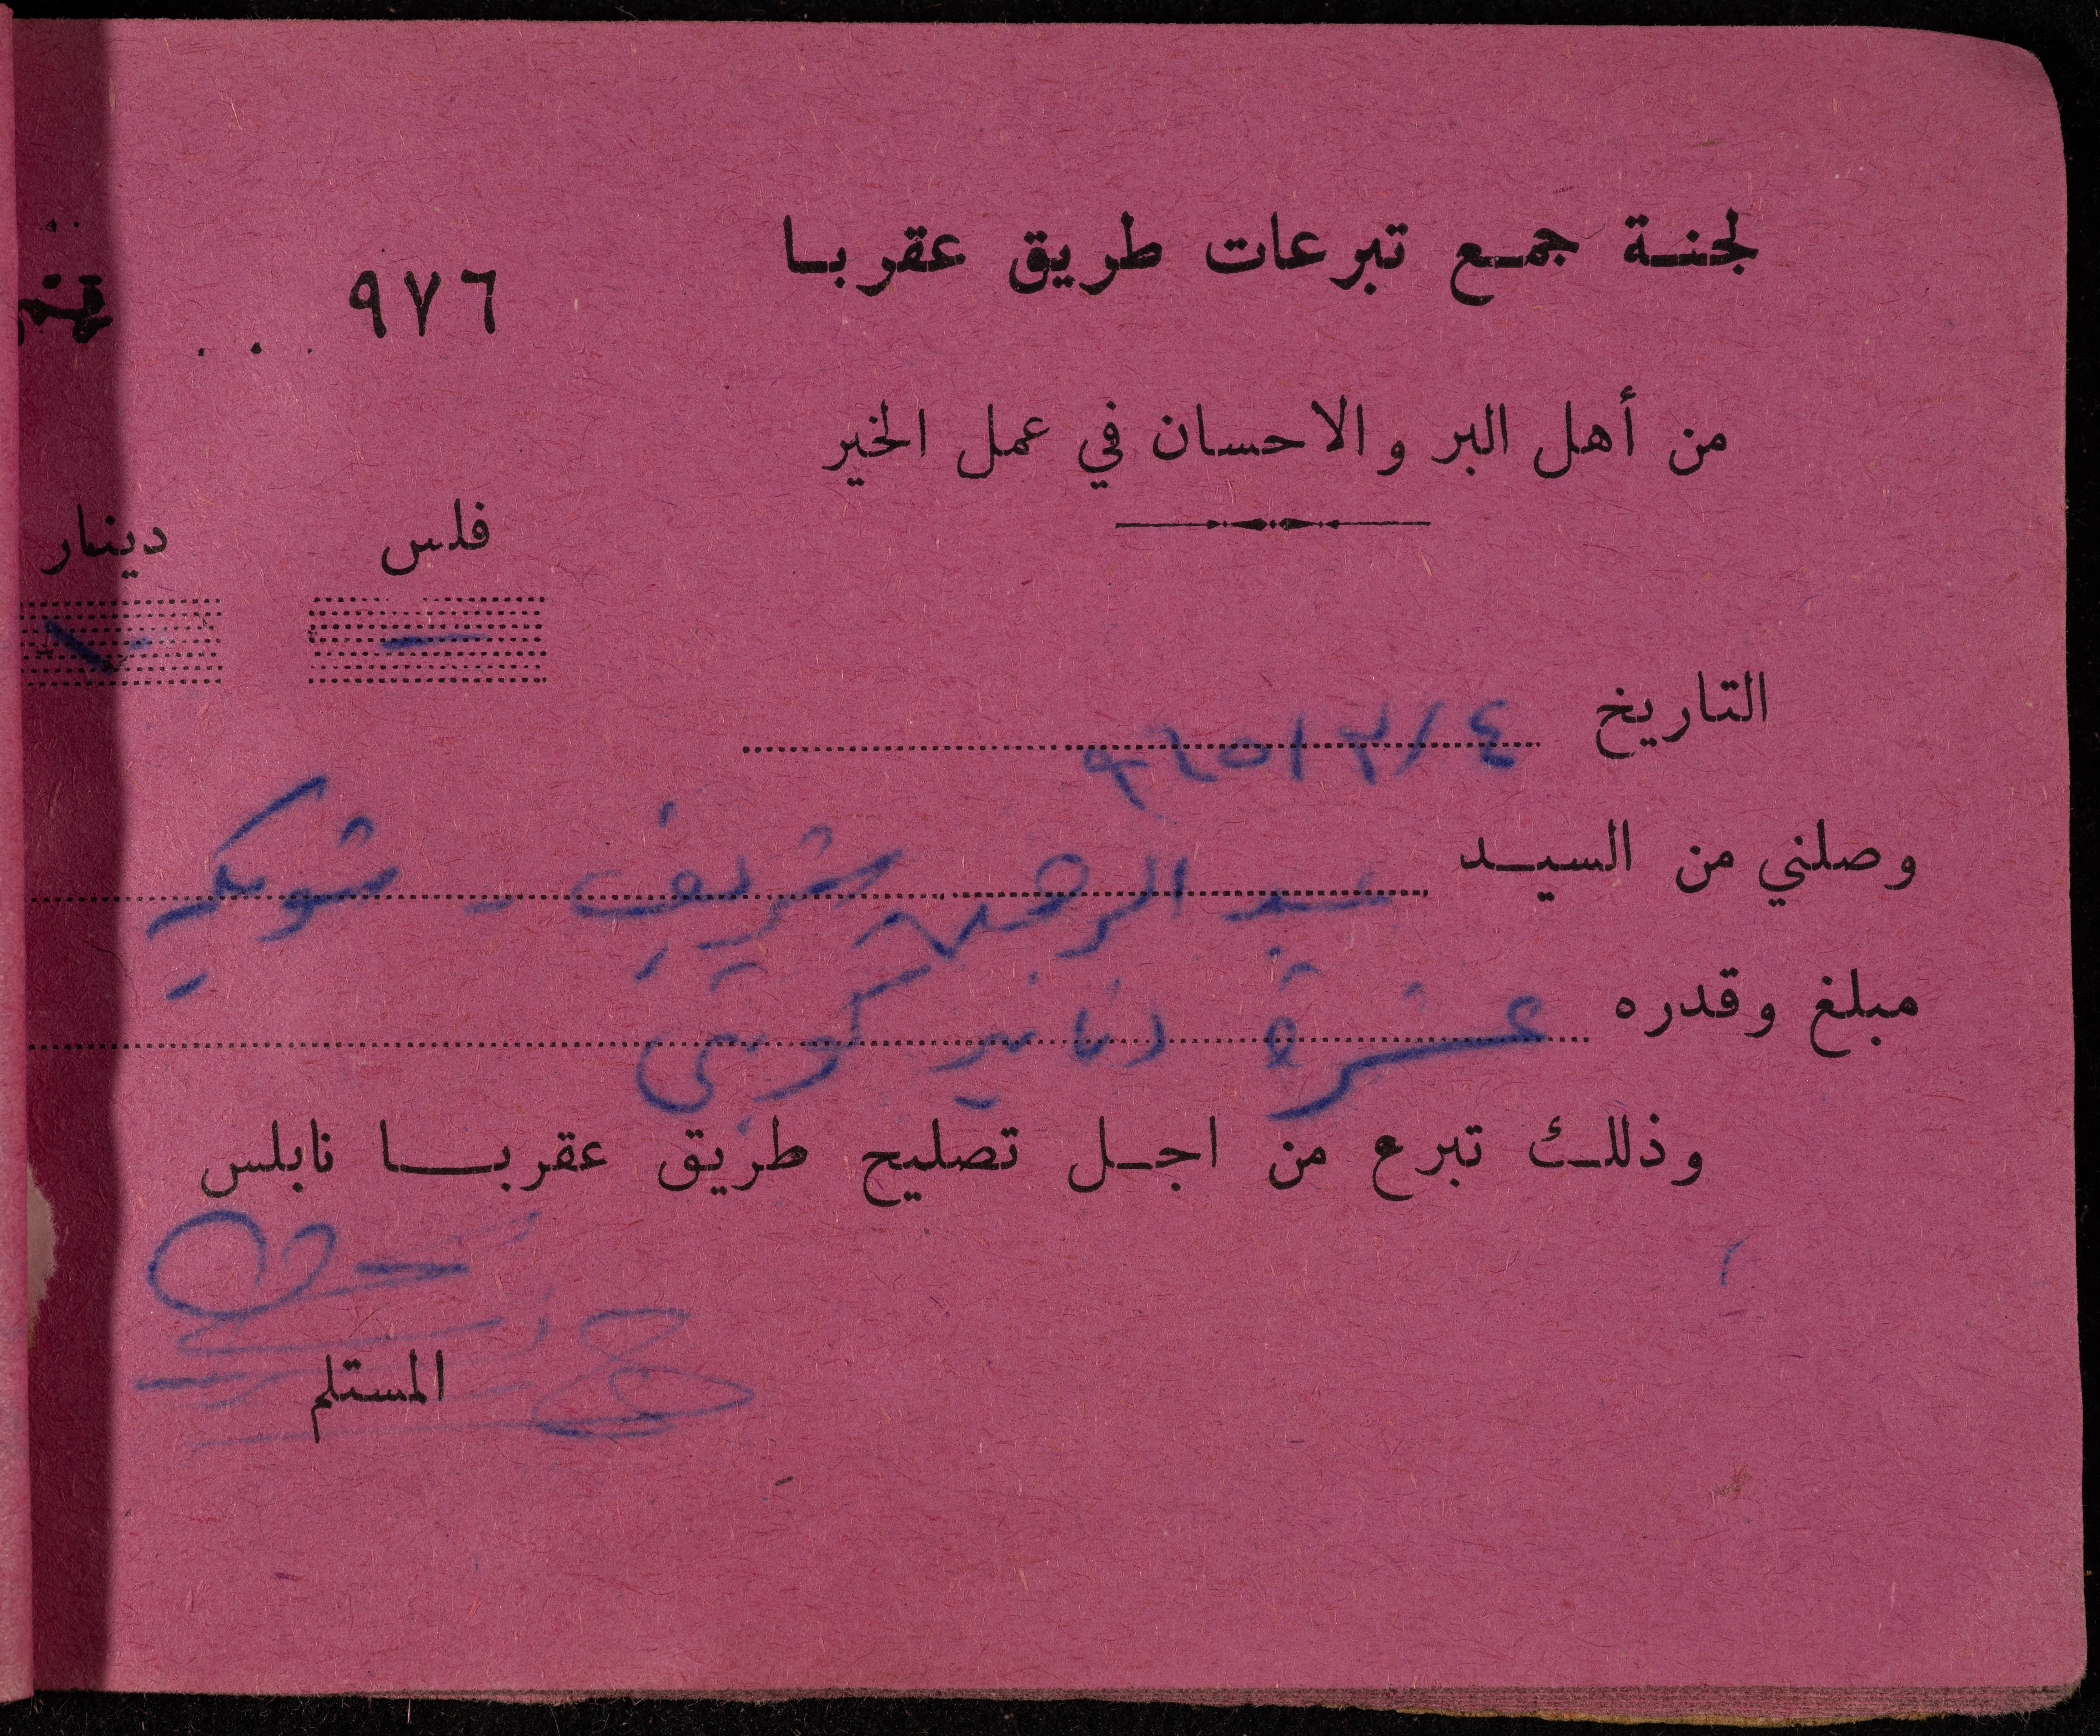 لجنة جمع تبرعات طريق عقربا
٩٧٦
من أهل البر والاحسان في عمل الخير
فلس دينار
— ١٠
التاريخ ٤/٣/٩٦٥
وصلني من السيد عبد الرحمن شريف - شويكه
مبلغ وقدره عشرة دنانير كويتي
وذلك تبرع من اجل تصليح طريق عقربا نابلس
المستلم